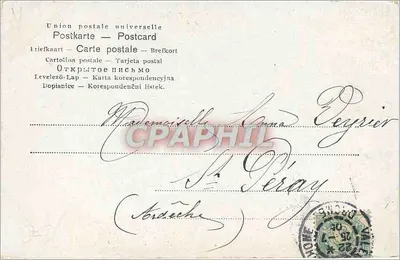 Union postale universelle
Postkarte — Postcard
Briefkaart — Carte postale — Brefkort
Cartolina postale — Tarjeta postal
Открытое письмо
Levelező-Lap — Karta korespondencyjna
Dopisnice — Korespondenční lístek.
Mademoiselle Anna Peyrier
CPAPHIL
St Péray
(Ardèche)
VALENCE
DROME